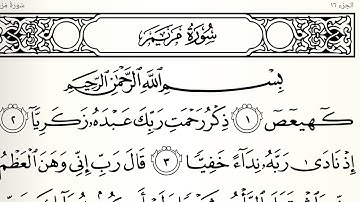 الجزء ١٦
سُورَةُ مَرۡيَمَ
سُورَةُ مَرۡيَمَ
بِسۡمِ ٱللَّهِ ٱلرَّحۡمَٰنِ ٱلرَّحِيمِ
كٓهيعٓصٓ ١ ذِكۡرُ رَحۡمَتِ رَبِّكَ عَبۡدَهُۥ زَكَرِيَّآ ٢
إِذۡ نَادَىٰ رَبَّهُۥ نِدَآءً خَفِيّٗا ٣ قَالَ رَبِّ إِنِّي وَهَنَ ٱلۡعَظۡمُ